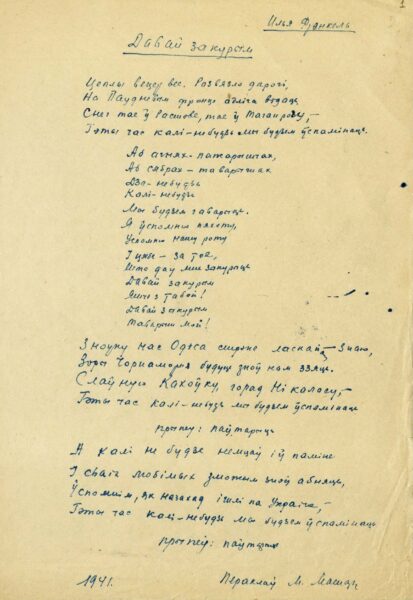 1
Ілья Фрэнкель
Давай закурым
Цёплы вецер вее. Развязло дарогі,
На Паўднёвым фронце адліга
Снег тае ў Растове, тае ў Таганрозе,-
Гэты час калі-небудзь мы будзем ўспамінаць.
Аб агнях-пажарышчах,
Аб сябрах-таварышах
Дзе-небудзь
Калі-небудзь
Мы будзем гаварыць.
Я ўспомню пяхоту,
Успомню нашу роту
І цябе - за тое,
Што даў мне закурыць
Давай закурым
Яшчэ з табой!
Давай закурым
Таварыш мой!
Зноўку нас Одэса стрэне ласкай - знаю,
Зоры Чорнамор'я будуць зноў нам ззяць.
Слаўную Кахоўку, горад Нікалаеў,-
Гэты час калі-небудзь мы будзем ўспамінаць
прыпеў: паўтарыць
А калі не будзе немцаў і ў паміне
І сваіх любімых зможам зноў абняць,
Ўспомнім, як назахад ішлі па Украіне,-
Гэты час калі-небудзь мы будзем ўспамінаць
прыпеў: паўтарыць
194 г. Пераклаў М.